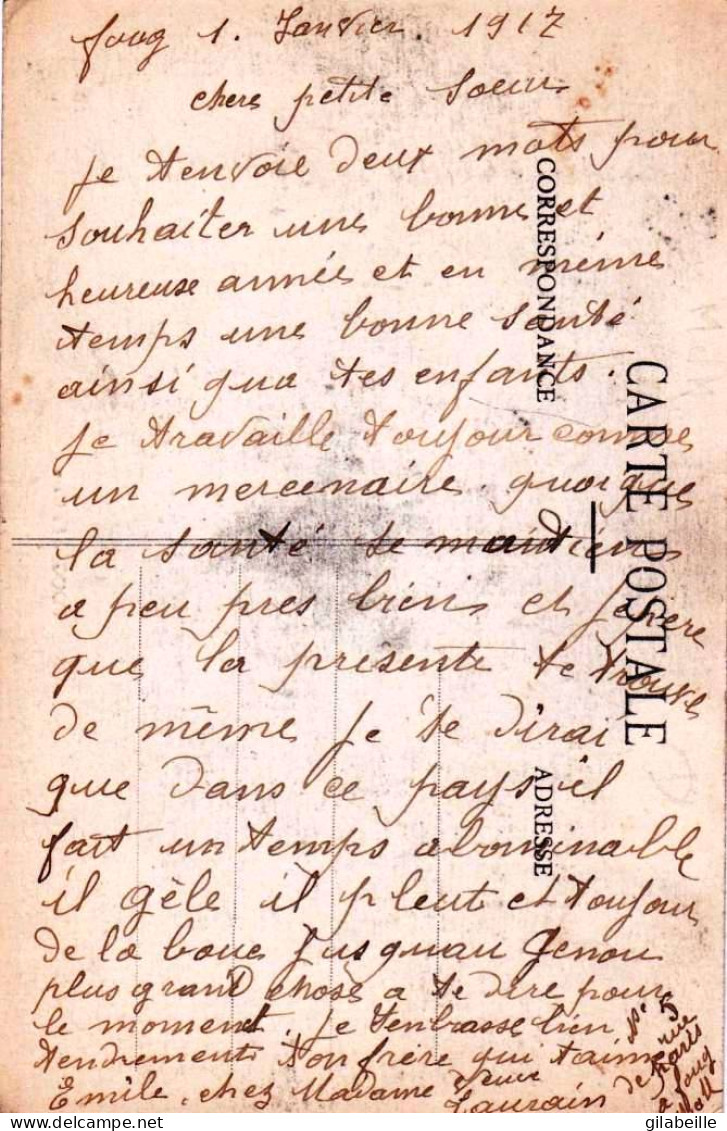 foug 1. Janvier. 1917
chere petite soeur
je tenvoie deux mots pour
souhaiter une bonne et
heureuse année et en même
temps une bonne santé
ainsi qua tes enfants.
je travaille toujour comme
un mercenaire. quoi que
la santé se maintiens
a peu pres bien et jespere
que la presente te trouve
de même je te dirai
que dans ce pays il
fait un temps abominable
il gêle il pleut et toujour
de la boue jusquau genou
plus grand chose a te dire pour
le moment. je tenbrasse bien
tendrement ton frère qui taime
Emile. chez Madame veuve
Laurain
N° 5
rue
de Paris
a foug
CORRESPONDANCE
CARTE POSTALE
ADRESSE
© gilabeille